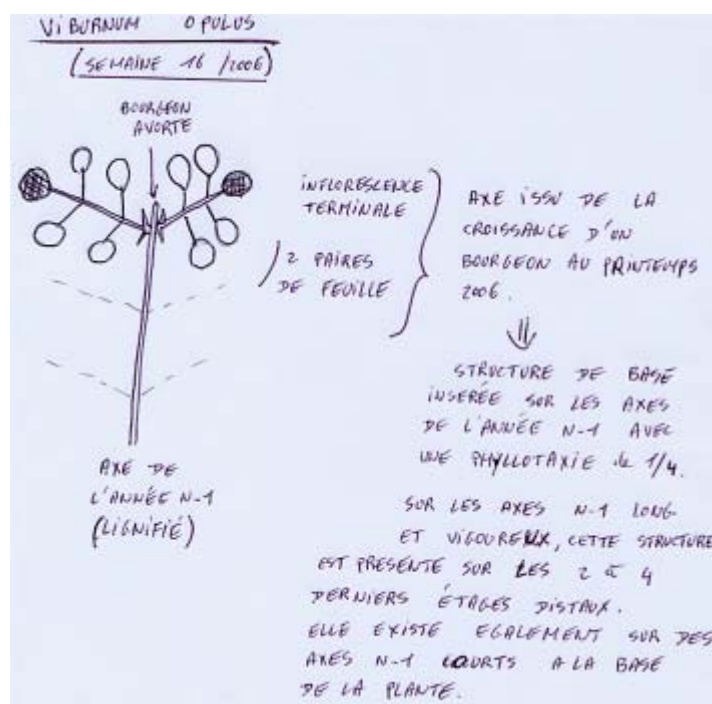 VIBURNUM OPULUS
(SEMAINE 16 /2006)
BOURGEON
AVORTE
INFLORESCENCE
TERMINALE
2 PAIRES
DE FEUILLE
AXE ISSU DE LA
CROISSANCE D'UN
BOURGEON AU PRINTEMPS
2006.
STRUCTURE DE BASE
INSERÉE SUR LES AXES
DE L'ANNÉE N-1 AVEC
UNE PHYLLOTAXIE de 1/4.
AXE DE
L'ANNÉE N-1
(LIGNIFIÉ)
SUR LES AXES N-1 LONG
ET VIGOUREUX, CETTE STRUCTURE
EST PRESENTE SUR LES 2 à 4
DERNIERS ÉTAGES DISTAUX.
ELLE EXISTE EGALEMENT SUR DES
AXES N-1 COURTS A LA BASE
DE LA PLANTE.